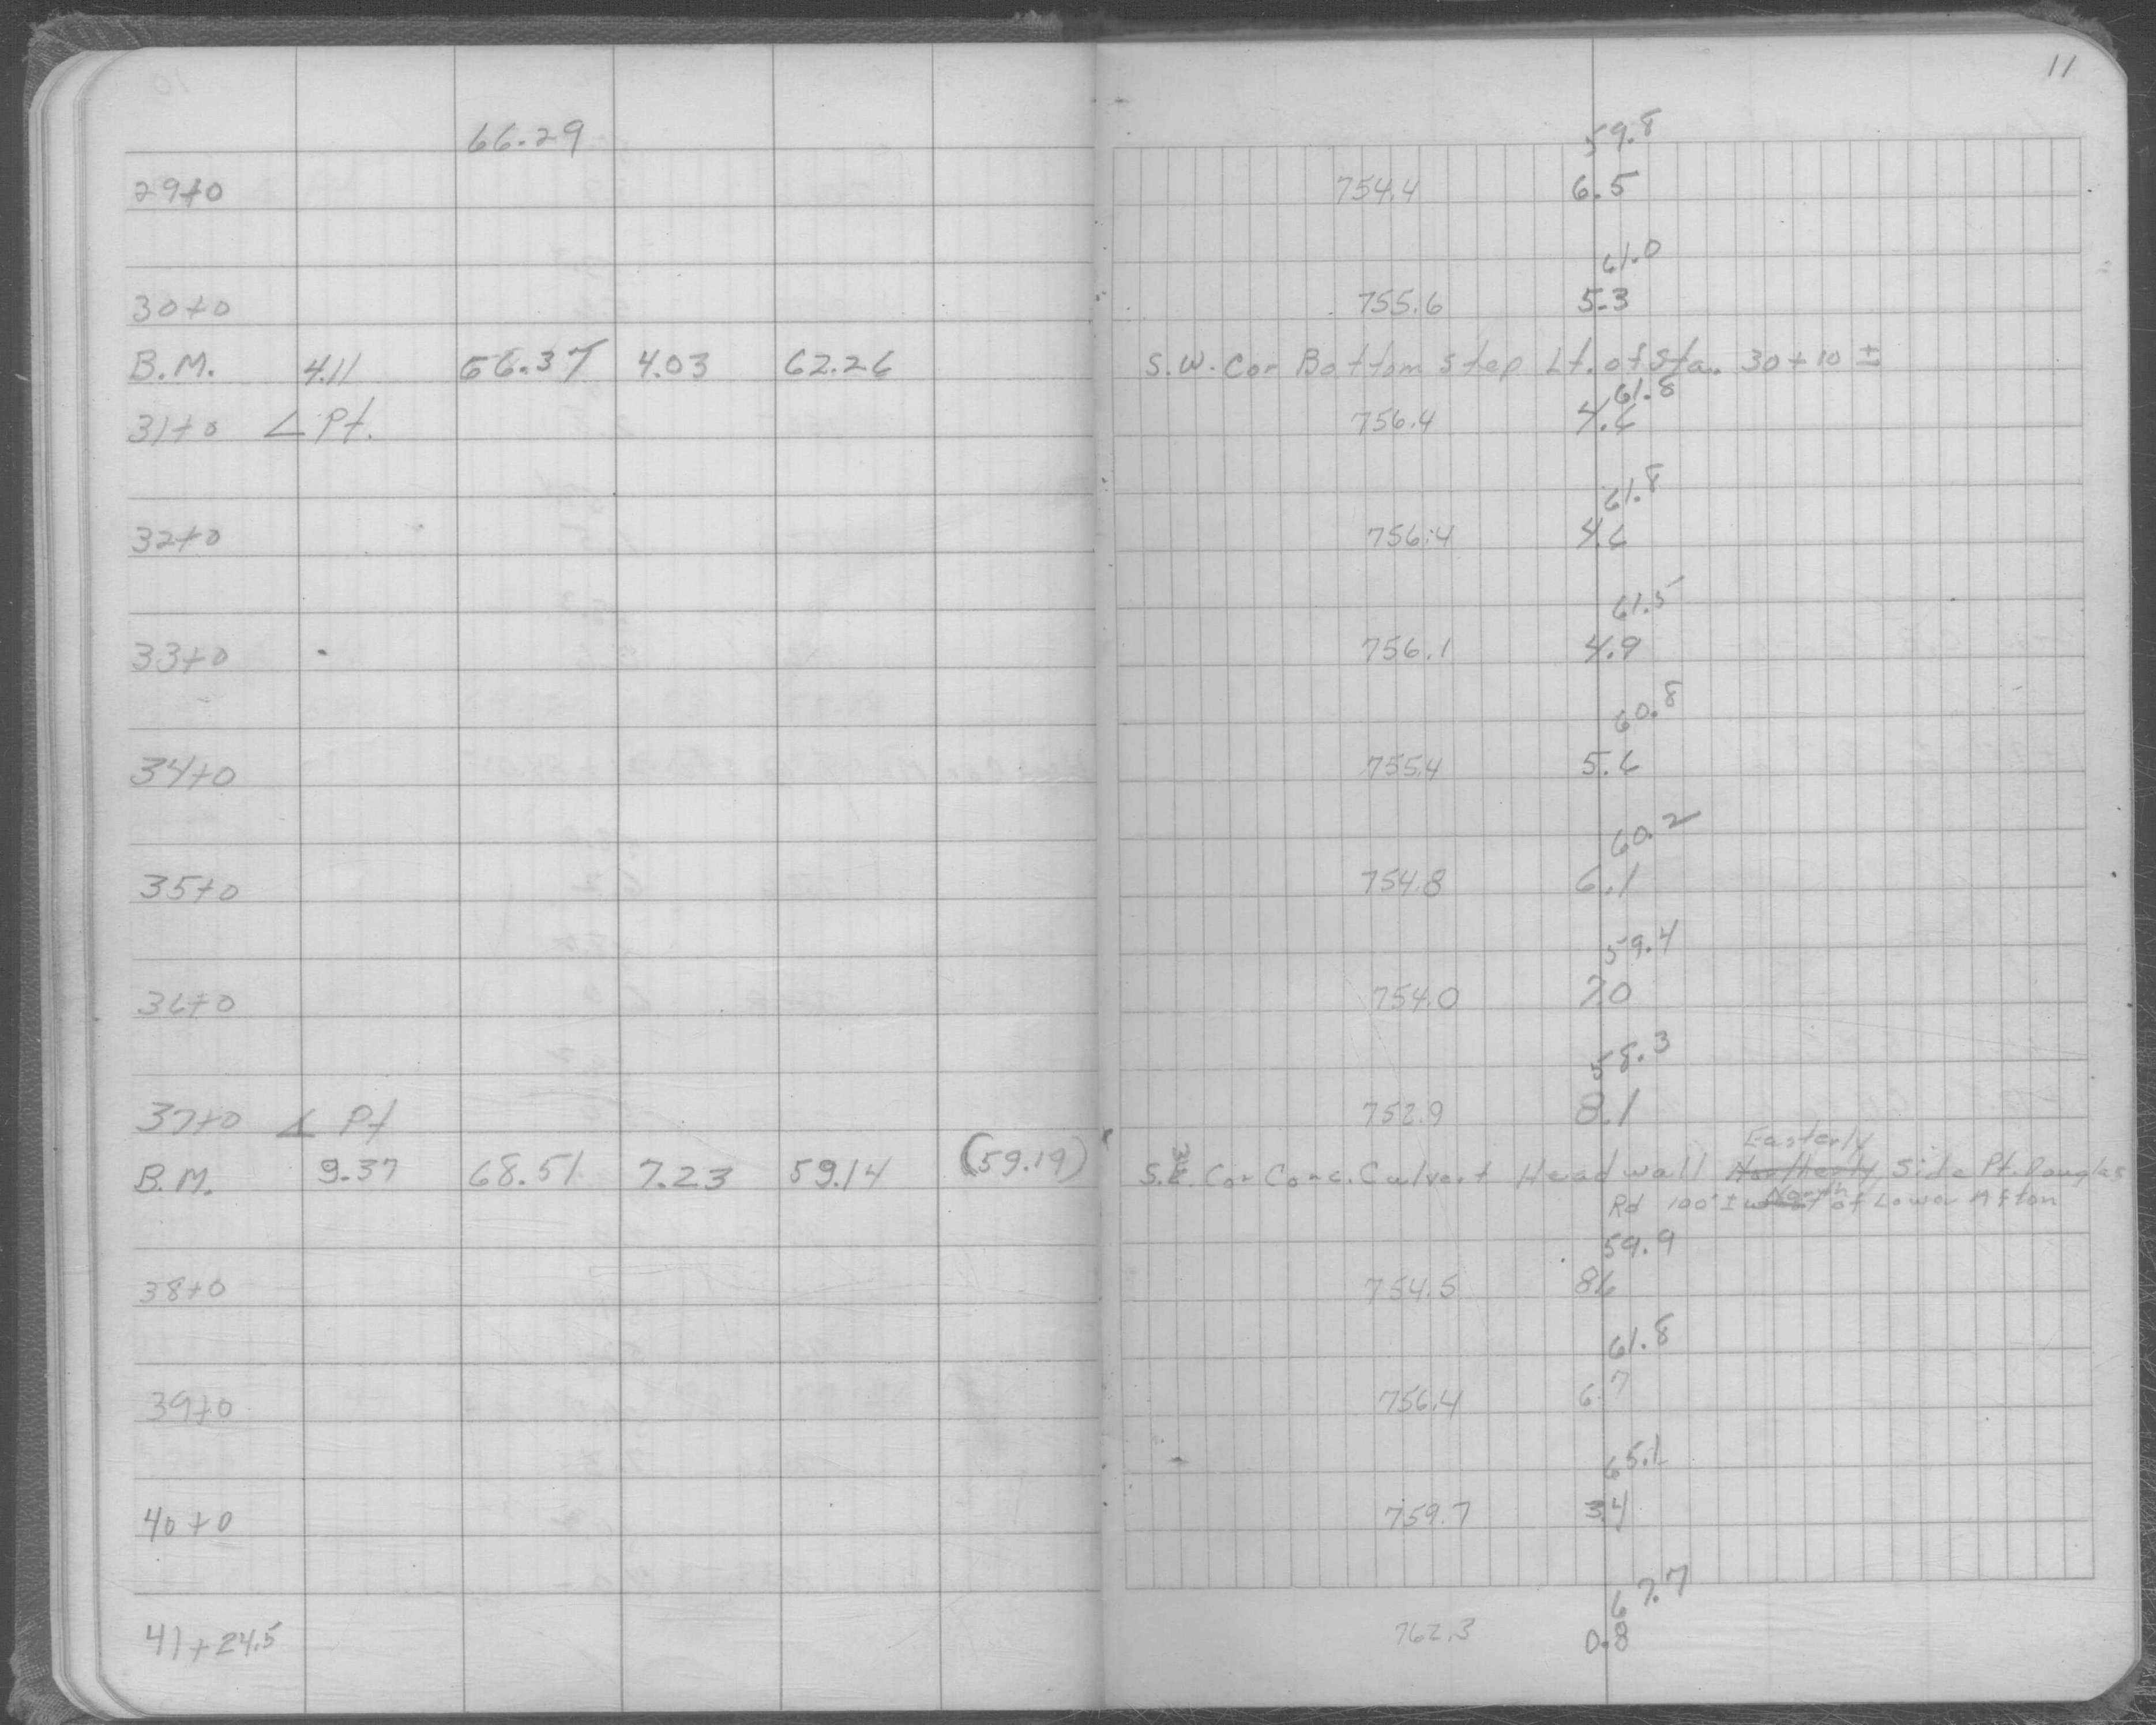 11
66.29 59.8
29+0 754.4 6.5
61.0
30+0 755.6 5.3
B.M. 4.11 66.37 4.03 62.26 S.W. Cor Bottom Step Lt. of Sta. 30+10 ±
61.8
31+0 ∠ Pt. 756.4 4.6
61.8
32+0 756.4 4.6
61.5
33+0 756.1 4.9
60.8
34+0 755.4 5.6
60.2
35+0 754.8 6.1
59.4
36+0 754.0 7.0
58.3
37+0 ∠ Pt 752.9 8.1
Easterly
B.M. 9.37 68.51 7.23 59.14 (59.19) S.E. Cor Conc. Culvert Headwall Northerly Side Pt. Douglas
North
Rd 100' ± west of Lower Afton
59.9
38+0 754.5 8.6
61.8
39+0 756.4 6.7
65.1
40+0 759.7 3.4
67.7
41+24.5 762.3 0.8